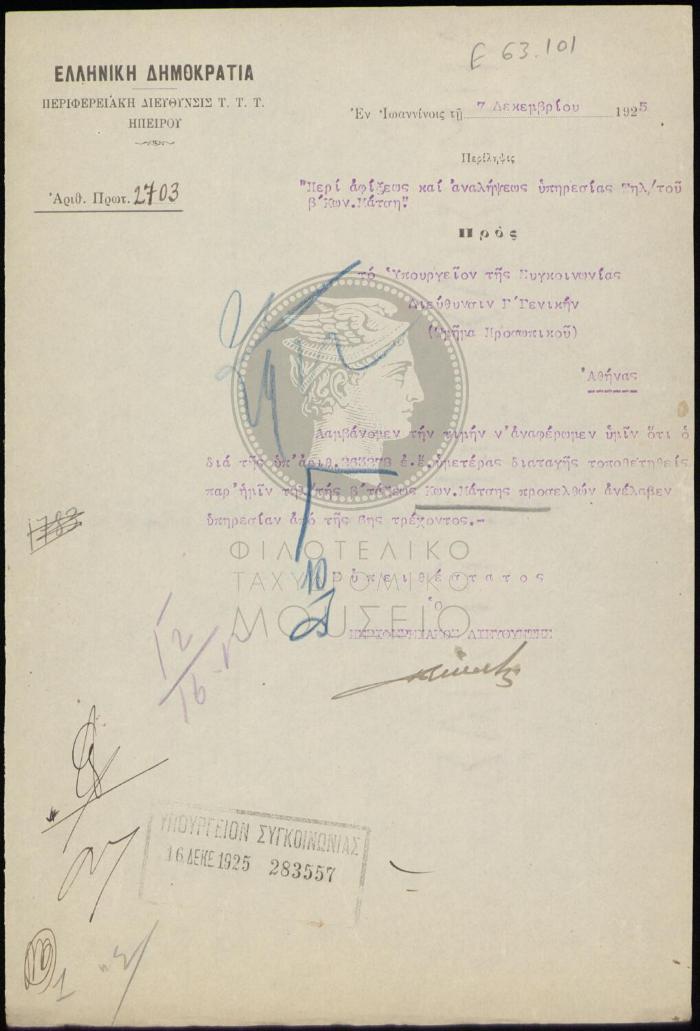 Ε 63.101
ΕΛΛΗΝΙΚΗ ΔΗΜΟΚΡΑΤΙΑ
ΠΕΡΙΦΕΡΕΙΑΚΗ ΔΙΕΥΘΥΝΣΙΣ Τ. Τ. Τ.
ΗΠΕΙΡΟΥ
Ἐν Ἰωαννίνοις τῇ 7 Δεκεμβρίου 1925
Ἀριθ. Πρωτ. 2703
Περίληψις
"Περί ἀφίξεως καί ἀναλήψεως ὑπηρεσίας Τηλ/τοῦ
β'Κων.Μάτση"
Πρὸς
τό Ὑπουργεῖον τῆς Συγκοινωνίας
Διεύθυνσιν Γ'Γενικήν
(Τμῆμα Προσωπικοῦ)
Ἀθήνας
Λαμβάνομεν τήν τιμήν ν'ἀναφέρωμεν ὑμῖν ὅτι ὁ
διά τῆς ὑπ'ἀριθ. 263278 ἐ.ἔ.ὑμετέρας διαταγῆς τοποθετηθείς
παρ'ἡμῖν τηλ/τής β'τάξεως Κων.Μάτσης προσελθών ἀνέλαβεν
ὑπηρεσίαν ἀπό τῆς 6ης τρέχοντος.-
ΦΙΛΟΤΕΛΙΚΟ
ΤΑΧΥΔΡΟΜΙΚΟ
ΜΟΥΣΕΙΟ
Εὐπειθέστατος
ὁ
ΠΕΡΙΦΕΡΕΙΑΚΟΣ ΔΙΕΥΘΥΝΤΗΣ
10
12
16
ΥΠΟΥΡΓΕΙΟΝ ΣΥΓΚΟΙΝΩΝΙΑΣ
16 ΔΕΚΕ 1925 283557
27